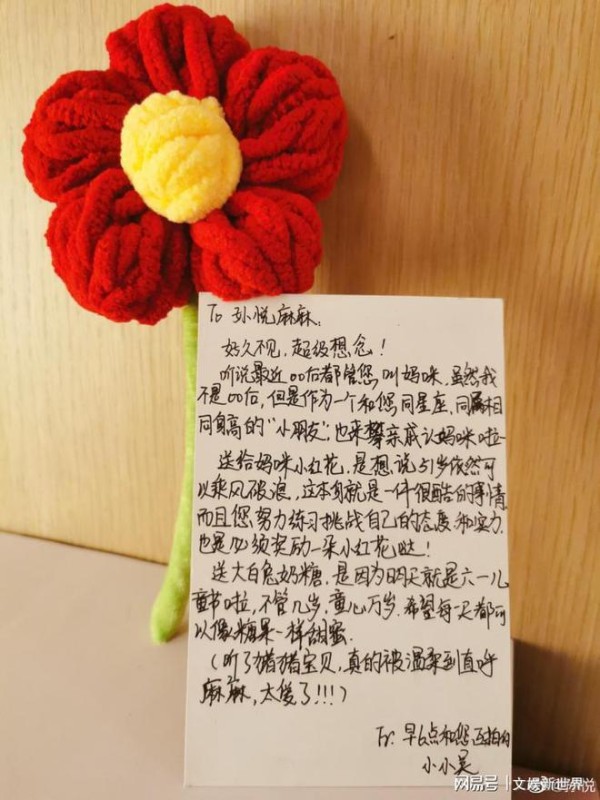 To 孙悦麻麻:
好久不见,超级想念!
听说最近00后都管您叫妈咪,虽然我
不是00后,但是作为一个和您同星座,同属相
同身高的“小朋友”,也来攀亲戚认妈咪啦
送给妈咪小红花,是想说51岁依然可
以乘风破浪,这本身就是一件很酷的事情
而且您努力练习挑战自己的态度和实力
也是必须奖励一朵小红花哒!
送大白兔奶糖,是因为明天就是六一儿
童节啦,不管几岁,童心万岁.希望每一天都可
以像糖果一样甜蜜.
(听了猪猪宝贝,真的被温柔到直呼
麻麻,太傻了!!!)
Fr: 早点和您互拍的
小小吴
网易号 | 文娱新世界